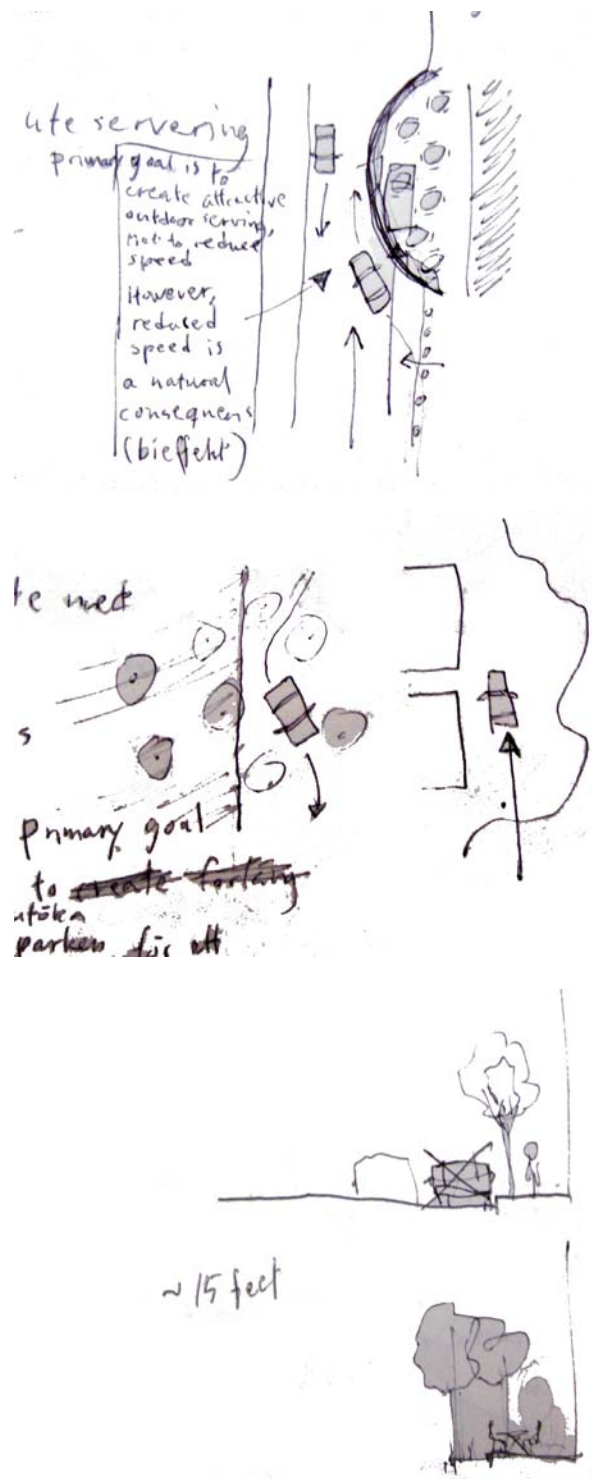 ute servering
primary goal is to
create attractive
outdoor serving,
not to reduce
speed
However,
reduced
speed is
a natural
consequens
(bieffekt)
te med
s
primary goal
to create
utöka
parken för att
~ 15 feet